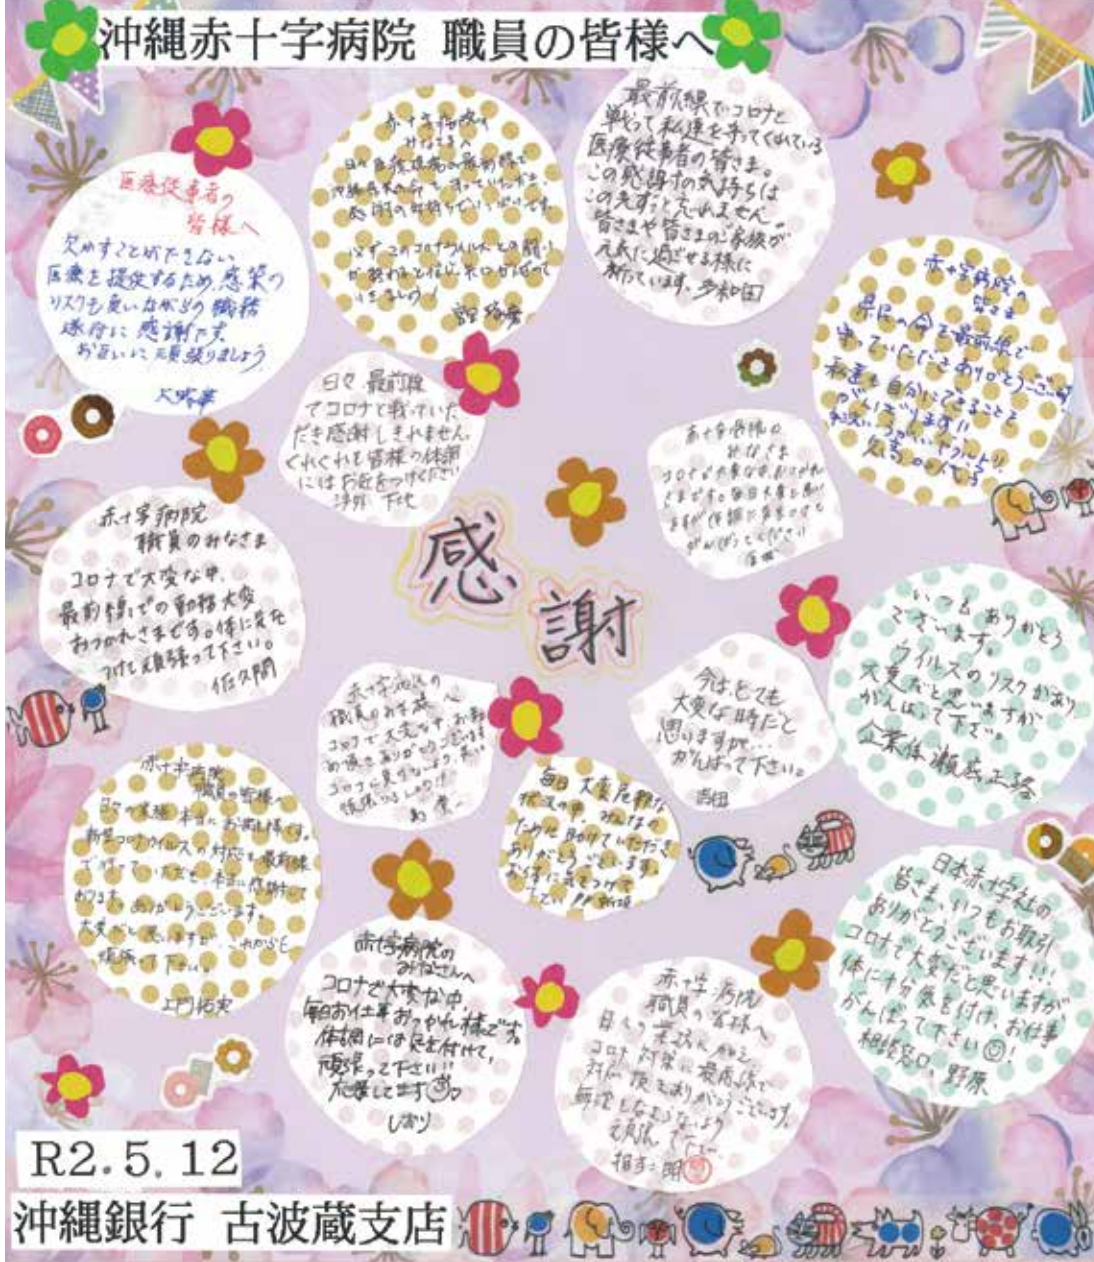 沖縄赤十字病院 職員の皆様へ
医療従事者の
皆様へ
欠かすことができない
医療を提供するため、感染の
リスクも負いながらの職務
遂行に感謝です。
お互いに頑張りましょう
赤十字病院の
みなさまへ
日々医療現場の最前線で
感謝の気持ちでいっぱいです。
必ずこのコロナウイルスとの闘い
が終わると信じ
いきましょう!
最前線でコロナと
戦って私達を守ってくれている
医療従事者の皆さま。
この感謝の気持ちは
この先ずっと忘れません。
皆さまや皆さまのご家族が
元気に過ごせる様に
祈っています。多和田
赤十字病院の
皆さま
県民の命を最前線で
守っていただきありがとうございます
私達も自分にできることを
がんばります!!
日々、最前線
でコロナと戦っていた
だき感謝しきれません。
くれぐれも皆様の体調
にはお気をつけください
赤十字病院の
みなさま
コロナで大変な中、おつかれ
さまです。毎日大変と思い
ますが体調に気をつけて
がんばってください
感
謝
赤十字病院
職員のみなさま
コロナで大変な中、
最前線での勤務大変
おつかれさまです。体に気を
つけて頑張って下さい。
佐久間
いつもありがとう
ございます。
ウイルスのリスクがあり
大変だと思いますが
がんばって下さい。
赤十字病院の
職員のみな様へ
コロナで大変な中、お勤
め頂きありがとうございます
今は、とても
大変な時だと
思いますが…
がんばって下さい。
吉田
毎日大変危険な
状況の中、みんなの
ために助けていただき
ありがとうございます。
お体に気をつけて
下さい!!
赤十字病院
職員の皆様へ
日々の業務、本当にお疲れ様です。
新型コロナウイルスの対応を最前線
で行っていただき、本当に感謝して
おります。ありがとうございます。
大変だと思いますが、これからも
頑張って下さい。
上門拓実
赤十字病院の
みなさんへ
コロナで大変な中、
毎日お仕事おつかれ様です。
体調には気を付けて、
頑張って下さい!!
応援してます
しおり
赤十字病院
職員の皆様へ
日々の業務に加え
コロナ対策に最前線で
対応頂きありがとうございます。
無理をなさらないよう
日本赤十字社の
皆さま、いつもお取引
ありがとうございます!!
コロナで大変だと思いますが
体に十分気を付け、お仕事
がんばって下さい!
相談窓口、野原
R2.5.12
沖縄銀行 古波蔵支店